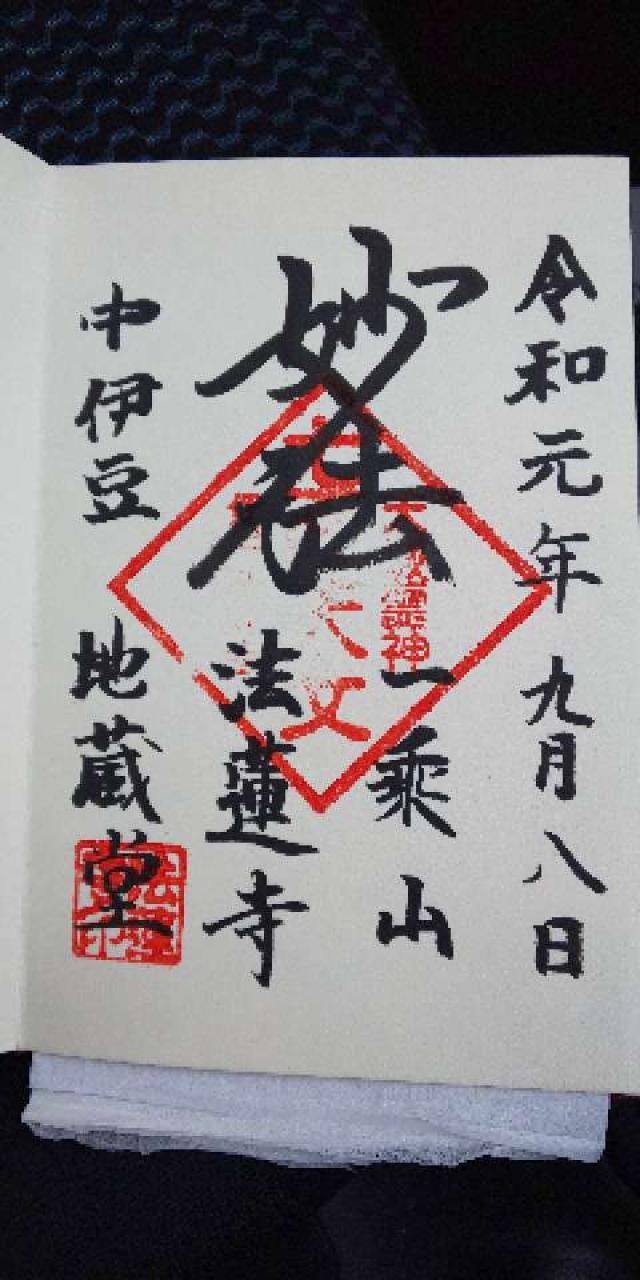 令和元年九月八日
妙法
一乗山
法蓮寺
中伊豆 地蔵堂